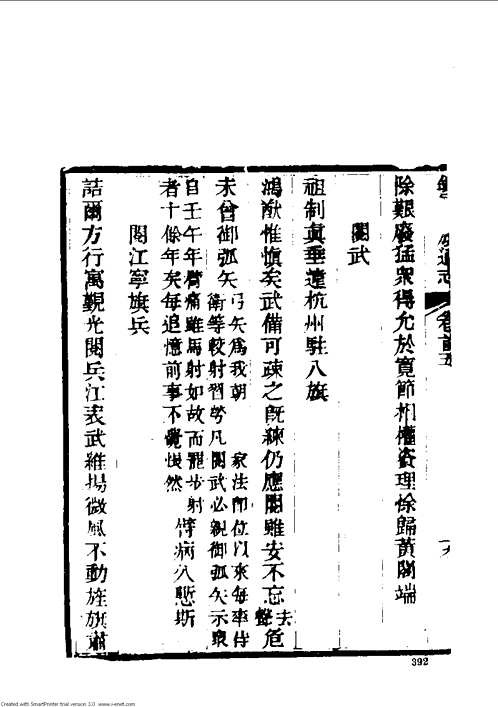 通志 卷首五
除艱廢猛衆得允於寬節相權資理徐歸黃閣端
閱武
祖制眞垂遠杭州駐八旗
鴻猷惟愼矣武備可疎之旣練仍應閱雖安不忘 去聲 危
未曾御弧矢 弓矢爲我朝 家法卽位以來每率侍
衛等較射習勞凡 閱武必親御弧矢示衆
自壬午年臂痛雖馬射如故而罷步射 臂病久慙斯
者十餘年矣每追憶前事不覺悵然
閱江寧旗兵
詰爾方行寓覲光閱兵江表武維揚微風不動旌旗肅
392
Created with SmartPrinter trial version 3.0 www.i-enet.com